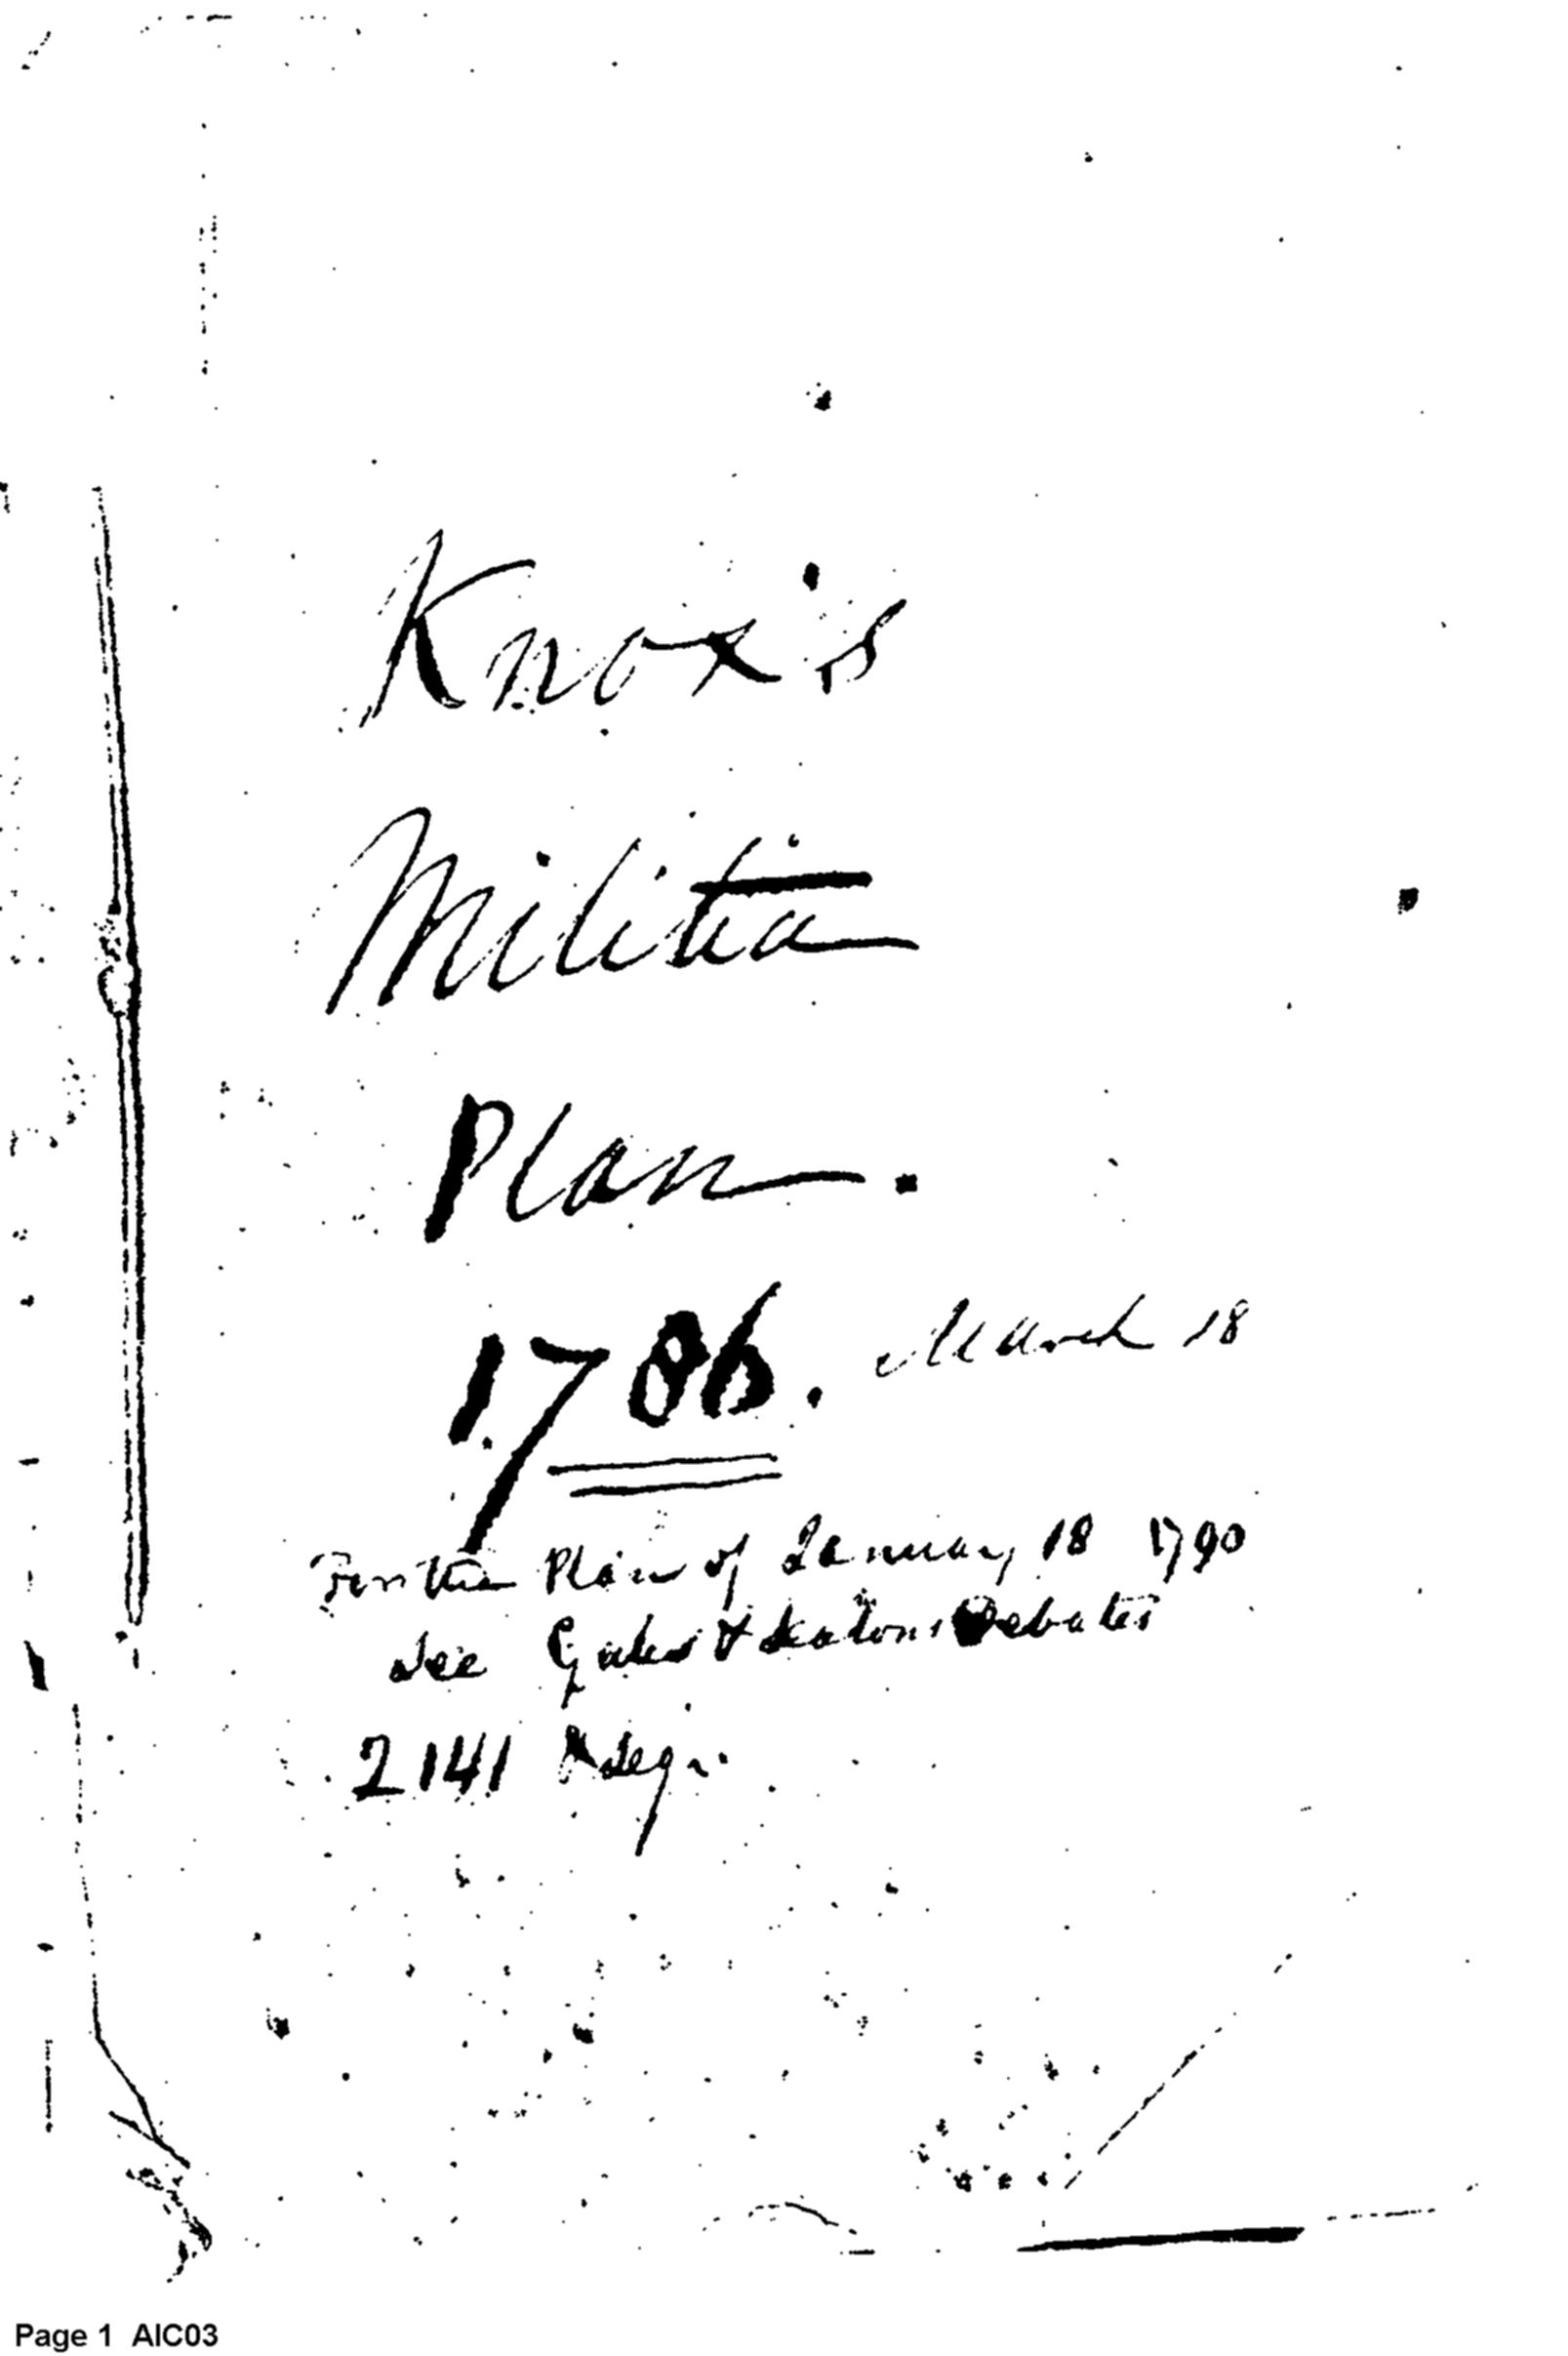 Knox's
Militia
Plan.
1786. March 18
For the Plan of January 18 1790
see Gales & Seatons Debates
2141 &seqr.
Page 1 AIC03